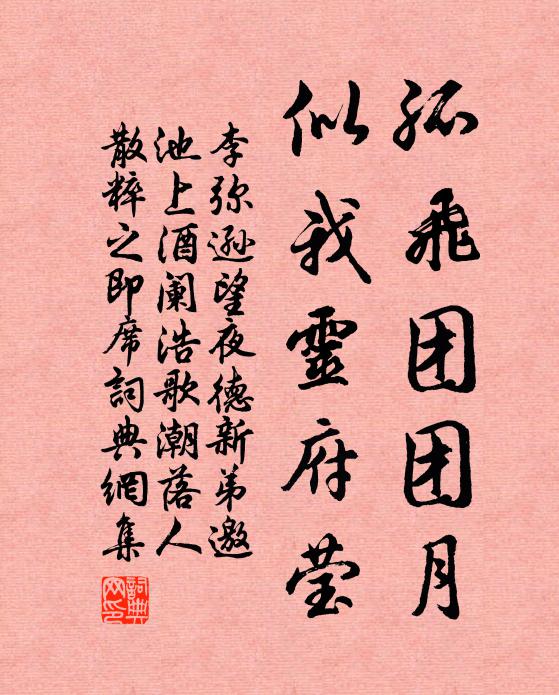 孤飛团团月
似我靈府莹
李弥遜望夜德新弟邀
池上酒阑浩歌潮落人
散粹之即席詞典網集